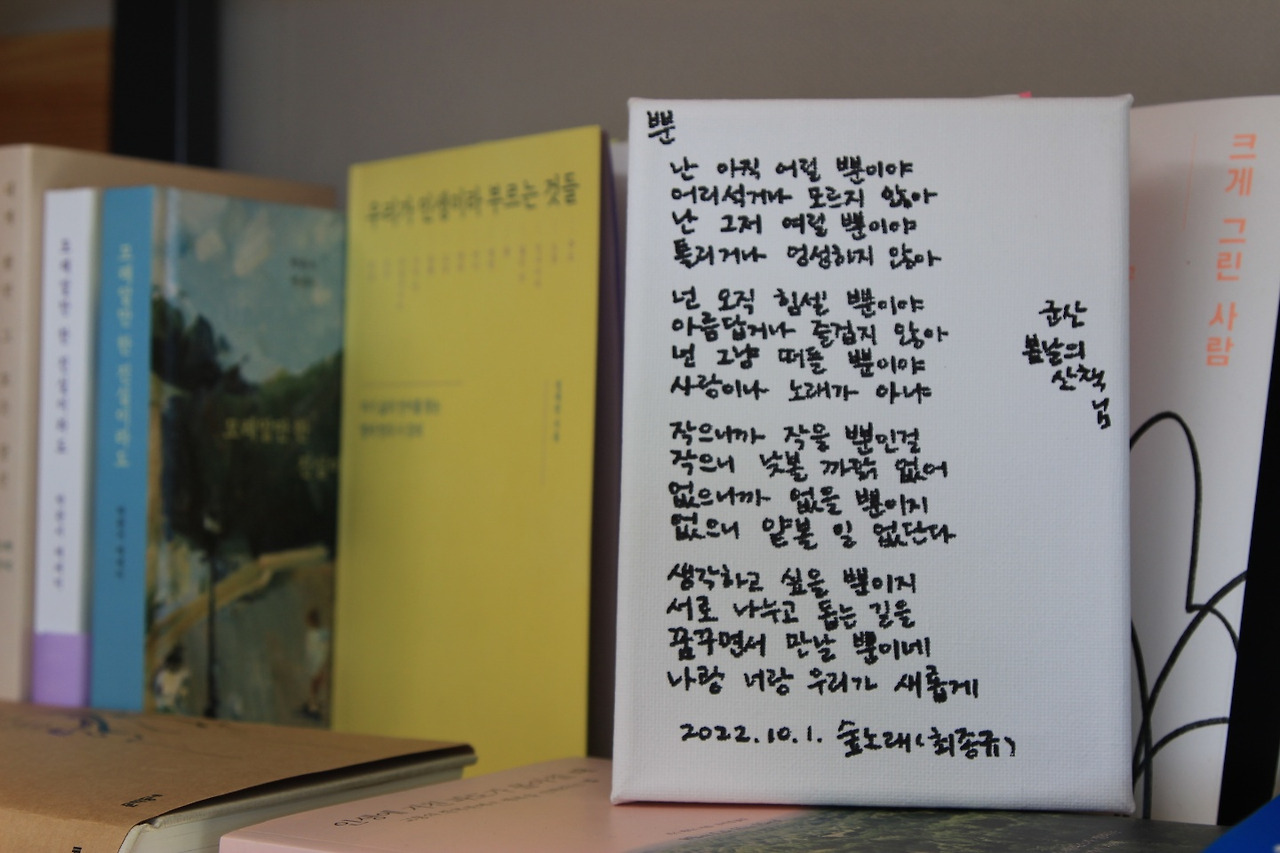 뿐
난 아직 어릴 뿐이야
어리석거나 모르지 않아
난 그저 여릴 뿐이야
틀리거나 엉성하지 않아
넌 오직 힘셀 뿐이야
아름답거나 즐겁지 않아
넌 그냥 떠들 뿐이야
사랑이나 노래가 아냐
작으니까 작을 뿐인걸
작으니 낮볼 까닭 없어
없으니까 없을 뿐이지
없으니 얕볼 일 없단다
생각하고 싶을 뿐이지
서로 나누고 돕는 길을
꿈꾸면서 만날 뿐이네
나랑 너랑 우리가 새롭게
2022.10.1. 숲노래(최종규)
군산
봄날의
산책
님
우리가 인생이라 부르는 것들
모래알만 한 진실이라도
모래알만 한 진실이라도
모래알만 한
크게 그린 사람